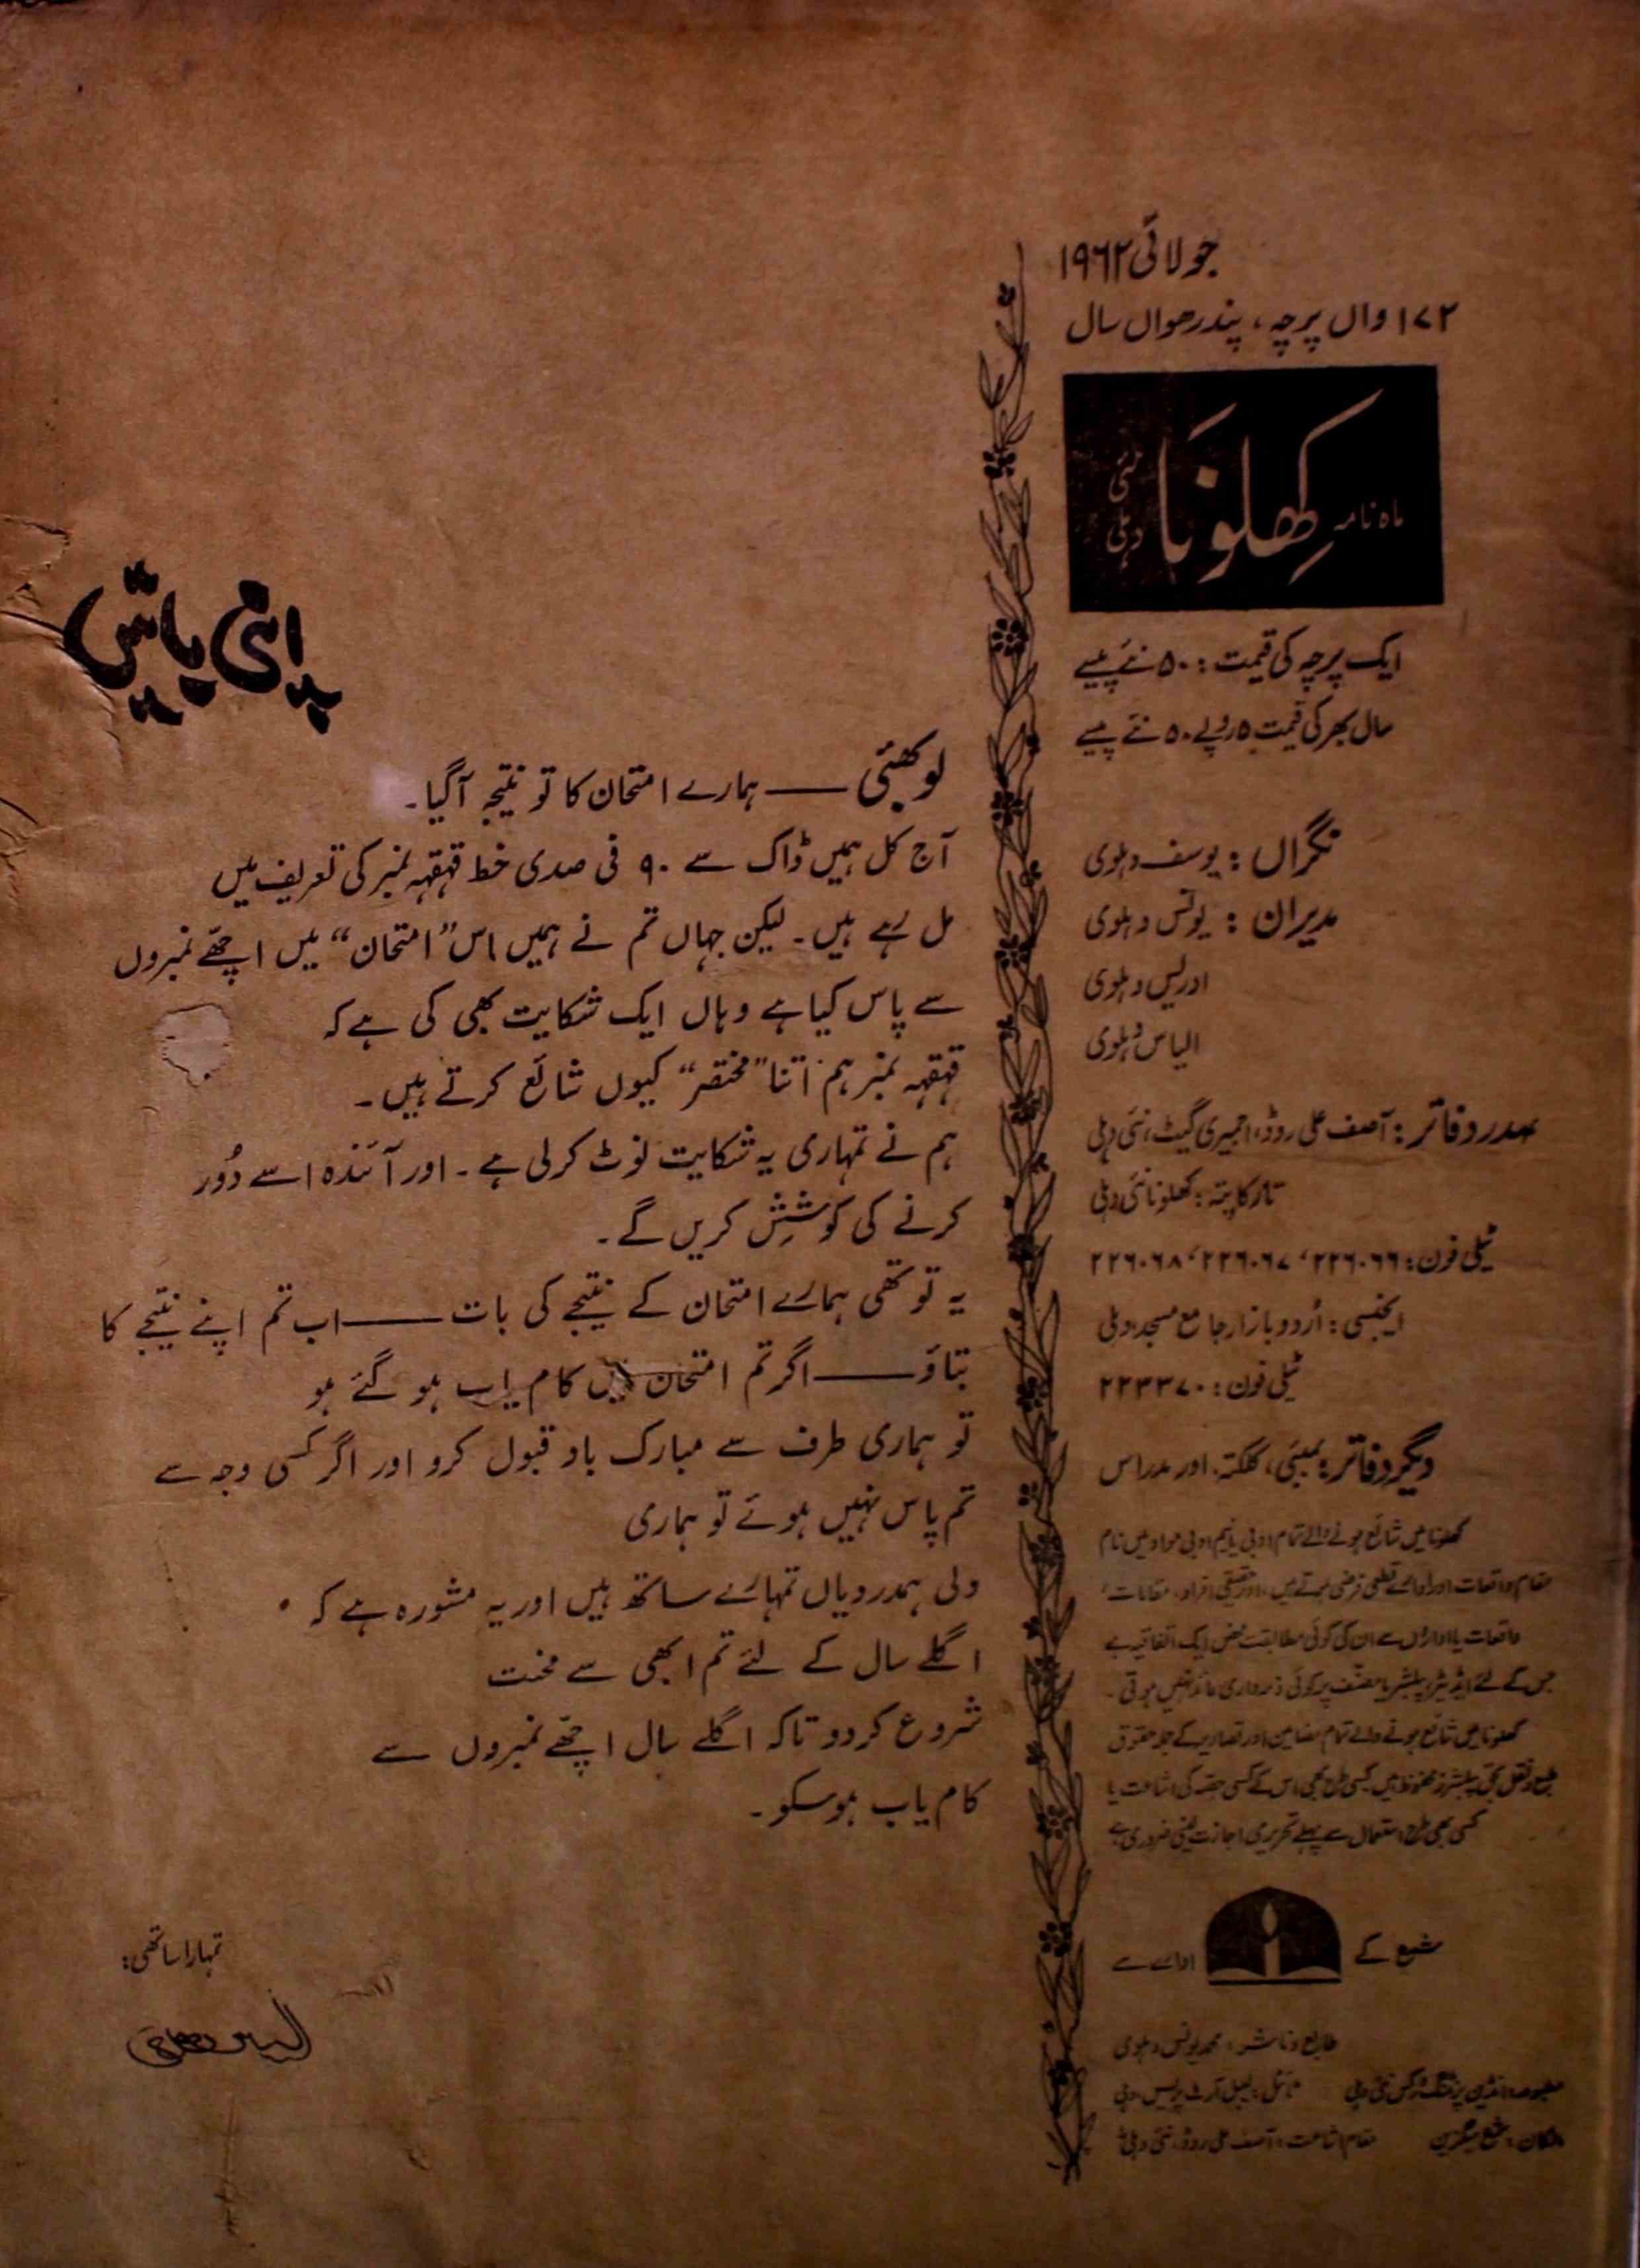 جولائی ۱۹۶۲
۱۷۲ واں پرچہ، پندرھواں سال
ماہ نامہ کھلونا نئی دہلی
ایک پرچہ کی قیمت : ۵۰ نئے پیسے
سال بھر کی قیمت ۵ روپے ۵۰ نئے پیسے
نگراں : یوسف دہلوی
مدیران : یونس دہلوی
ادریس دہلوی
الیاس دہلوی
صدر دفاتر : آصف علی روڈ، اجمیری گیٹ، نئی دہلی
تار کا پتہ : کھلونا نئی دہلی
ٹیلی فون : ۲۲۶۰۶۶، ۲۲۶۰۶۷، ۲۲۶۰۶۸
ایجنسی : اُردو بازار جامع مسجد دہلی
ٹیلی فون : ۲۲۳۳۷۰
دیگر دفاتر : بمبئی، کلکتہ، اور مدراس
کھلونا میں شائع ہونے والے تمام ادبی یا نیم ادبی مواد میں نام
مقام واقعات اور ادارے قطعی فرضی ہوتے ہیں، اور حقیقی افراد، مقامات،
واقعات یا اداروں سے ان کی کوئی مطابقت محض ایک اتفاقیہ ہے
جس کے لئے ایڈیٹر، پبلشر یا مصنّف پر کوئی ذمہ داری عائد نہیں ہوتی۔
کھلونا میں شائع ہونے والے تمام مضامین اور تصاویر کے جملہ حقوق
طبع و نقل بحق پبلشرز محفوظ ہیں کسی طرح بھی اس کے کسی حصّہ کی اشاعت یا
کسی بھی طرح استعمال سے پہلے تحریری اجازت لینی ضروری ہے
شمع کے ادارے سے
طابع و ناشر : محمد یونس دہلوی
مطبوعہ : انڈین پرنٹنگ ورکس نئی دہلی ٹائٹل : آرٹ پریس دہلی
مالکان : شمع میگزین مقام اشاعت : آصف علی روڈ، نئی دہلی
اپنی باتیں
لو بھئی —— ہمارے امتحان کا تو نتیجہ آ گیا۔
آج کل ہمیں ڈاک سے ۹۰ فی صدی خط قہقہہ نمبر کی تعریف میں
مل رہے ہیں۔ لیکن جہاں تم نے ہمیں اس "امتحان" میں اچھّے نمبروں
سے پاس کیا ہے وہاں ایک شکایت بھی کی ہے کہ
قہقہہ نمبر ہم اتنا "مختصر" کیوں شائع کرتے ہیں۔
ہم نے تمہاری یہ شکایت نوٹ کر لی ہے۔ اور آئندہ اسے دُور
کرنے کی کوشِش کریں گے۔
یہ تو تھی ہمارے امتحان کے نتیجے کی بات —— اب تم اپنے نتیجے کا
بتاؤ —— اگر تم امتحان میں کام یاب ہو گئے ہو
تو ہماری طرف سے مبارک باد قبول کرو اور اگر کسی وجہ سے
تم پاس نہیں ہوئے تو ہماری
دلی ہمدردیاں تمہارے ساتھ ہیں اور یہ مشورہ ہے کہ
اگلے سال کے لئے تم ابھی سے محنت
شروع کر دو تاکہ اگلے سال اچھّے نمبروں سے
کام یاب ہو سکو۔
تمہارا ساتھی :
الیاس دہلوی